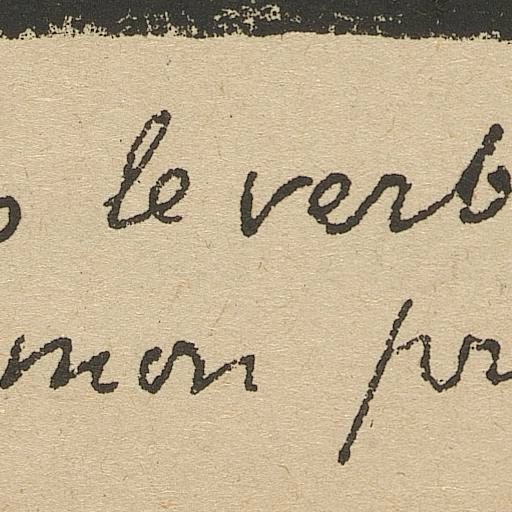 le verb
mon pr